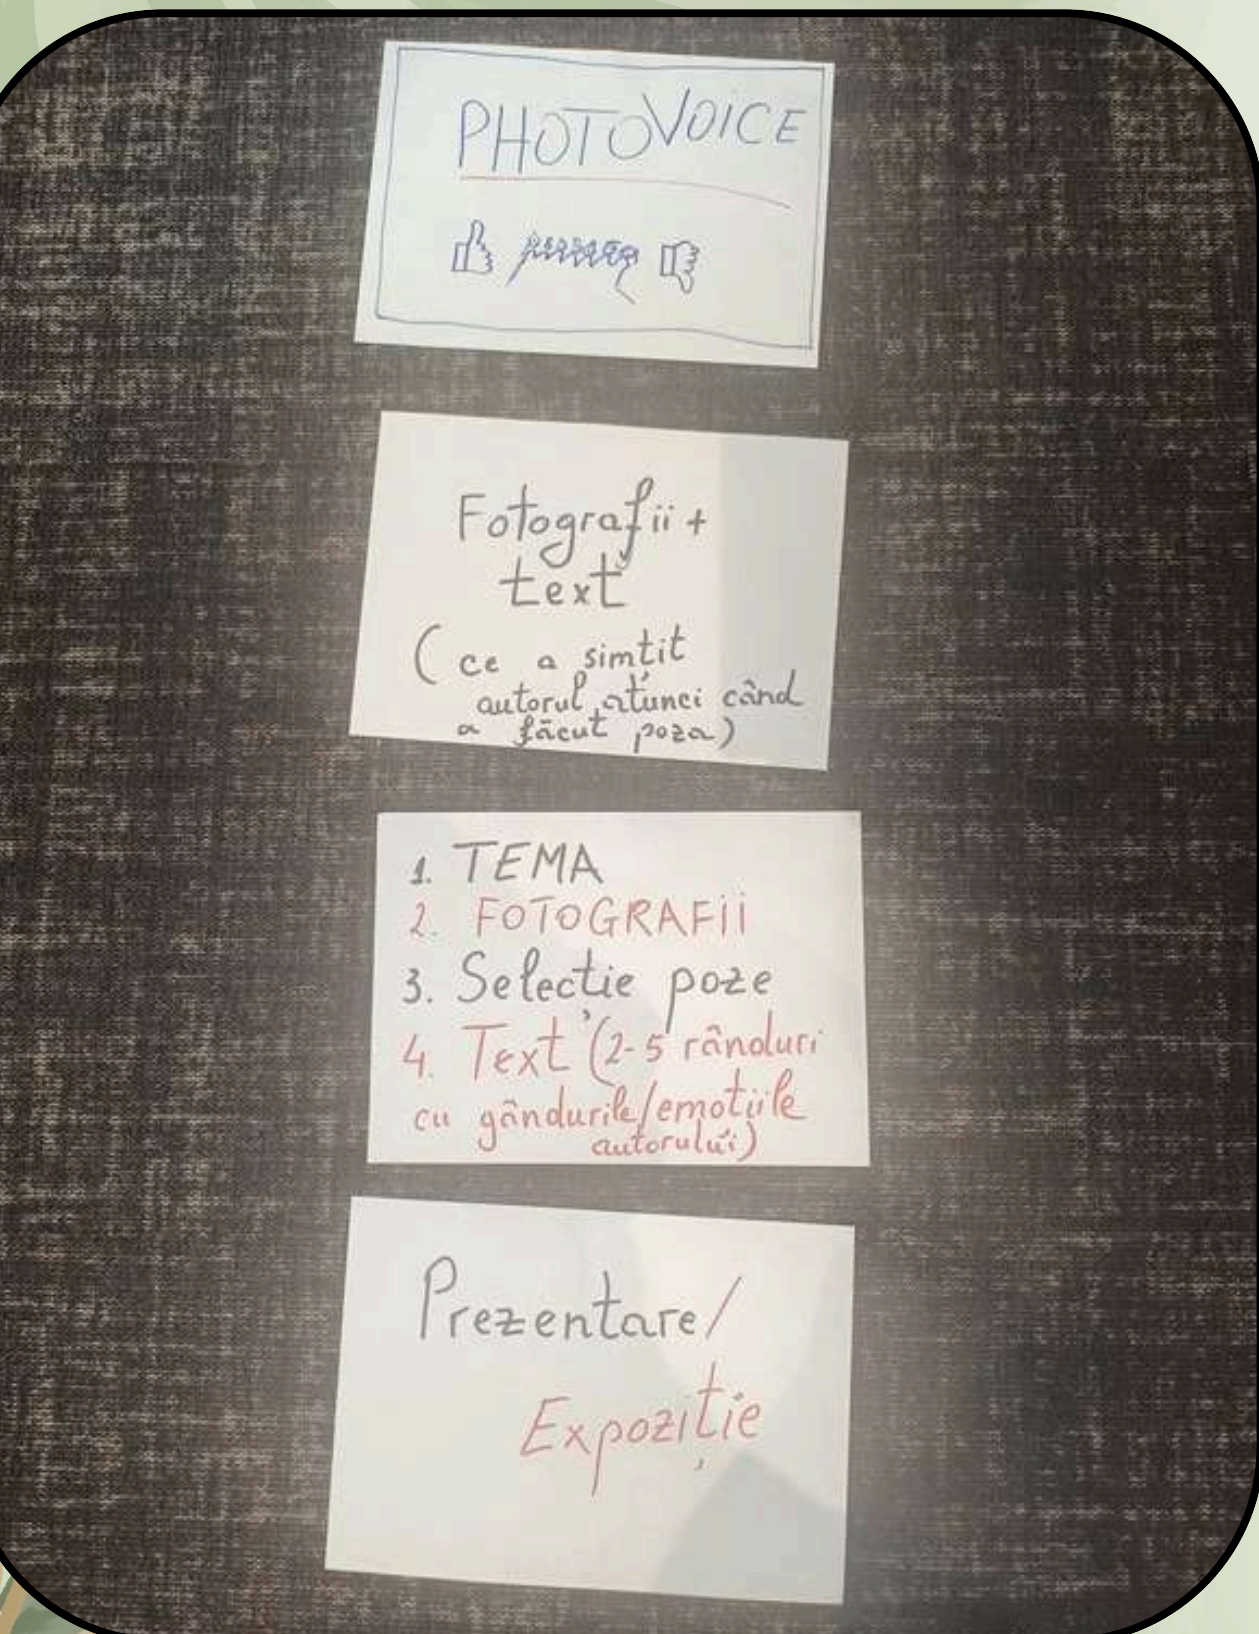 PHOTOVOICE
Fotografii +
text
(ce a simțit
autorul atunci când
a făcut poza)
1. TEMA
2. FOTOGRAFii
3. Selecție poze
4. Text (2-5 rânduri
cu gândurile/emoțiile
autorului)
Prezentare/
Expoziție